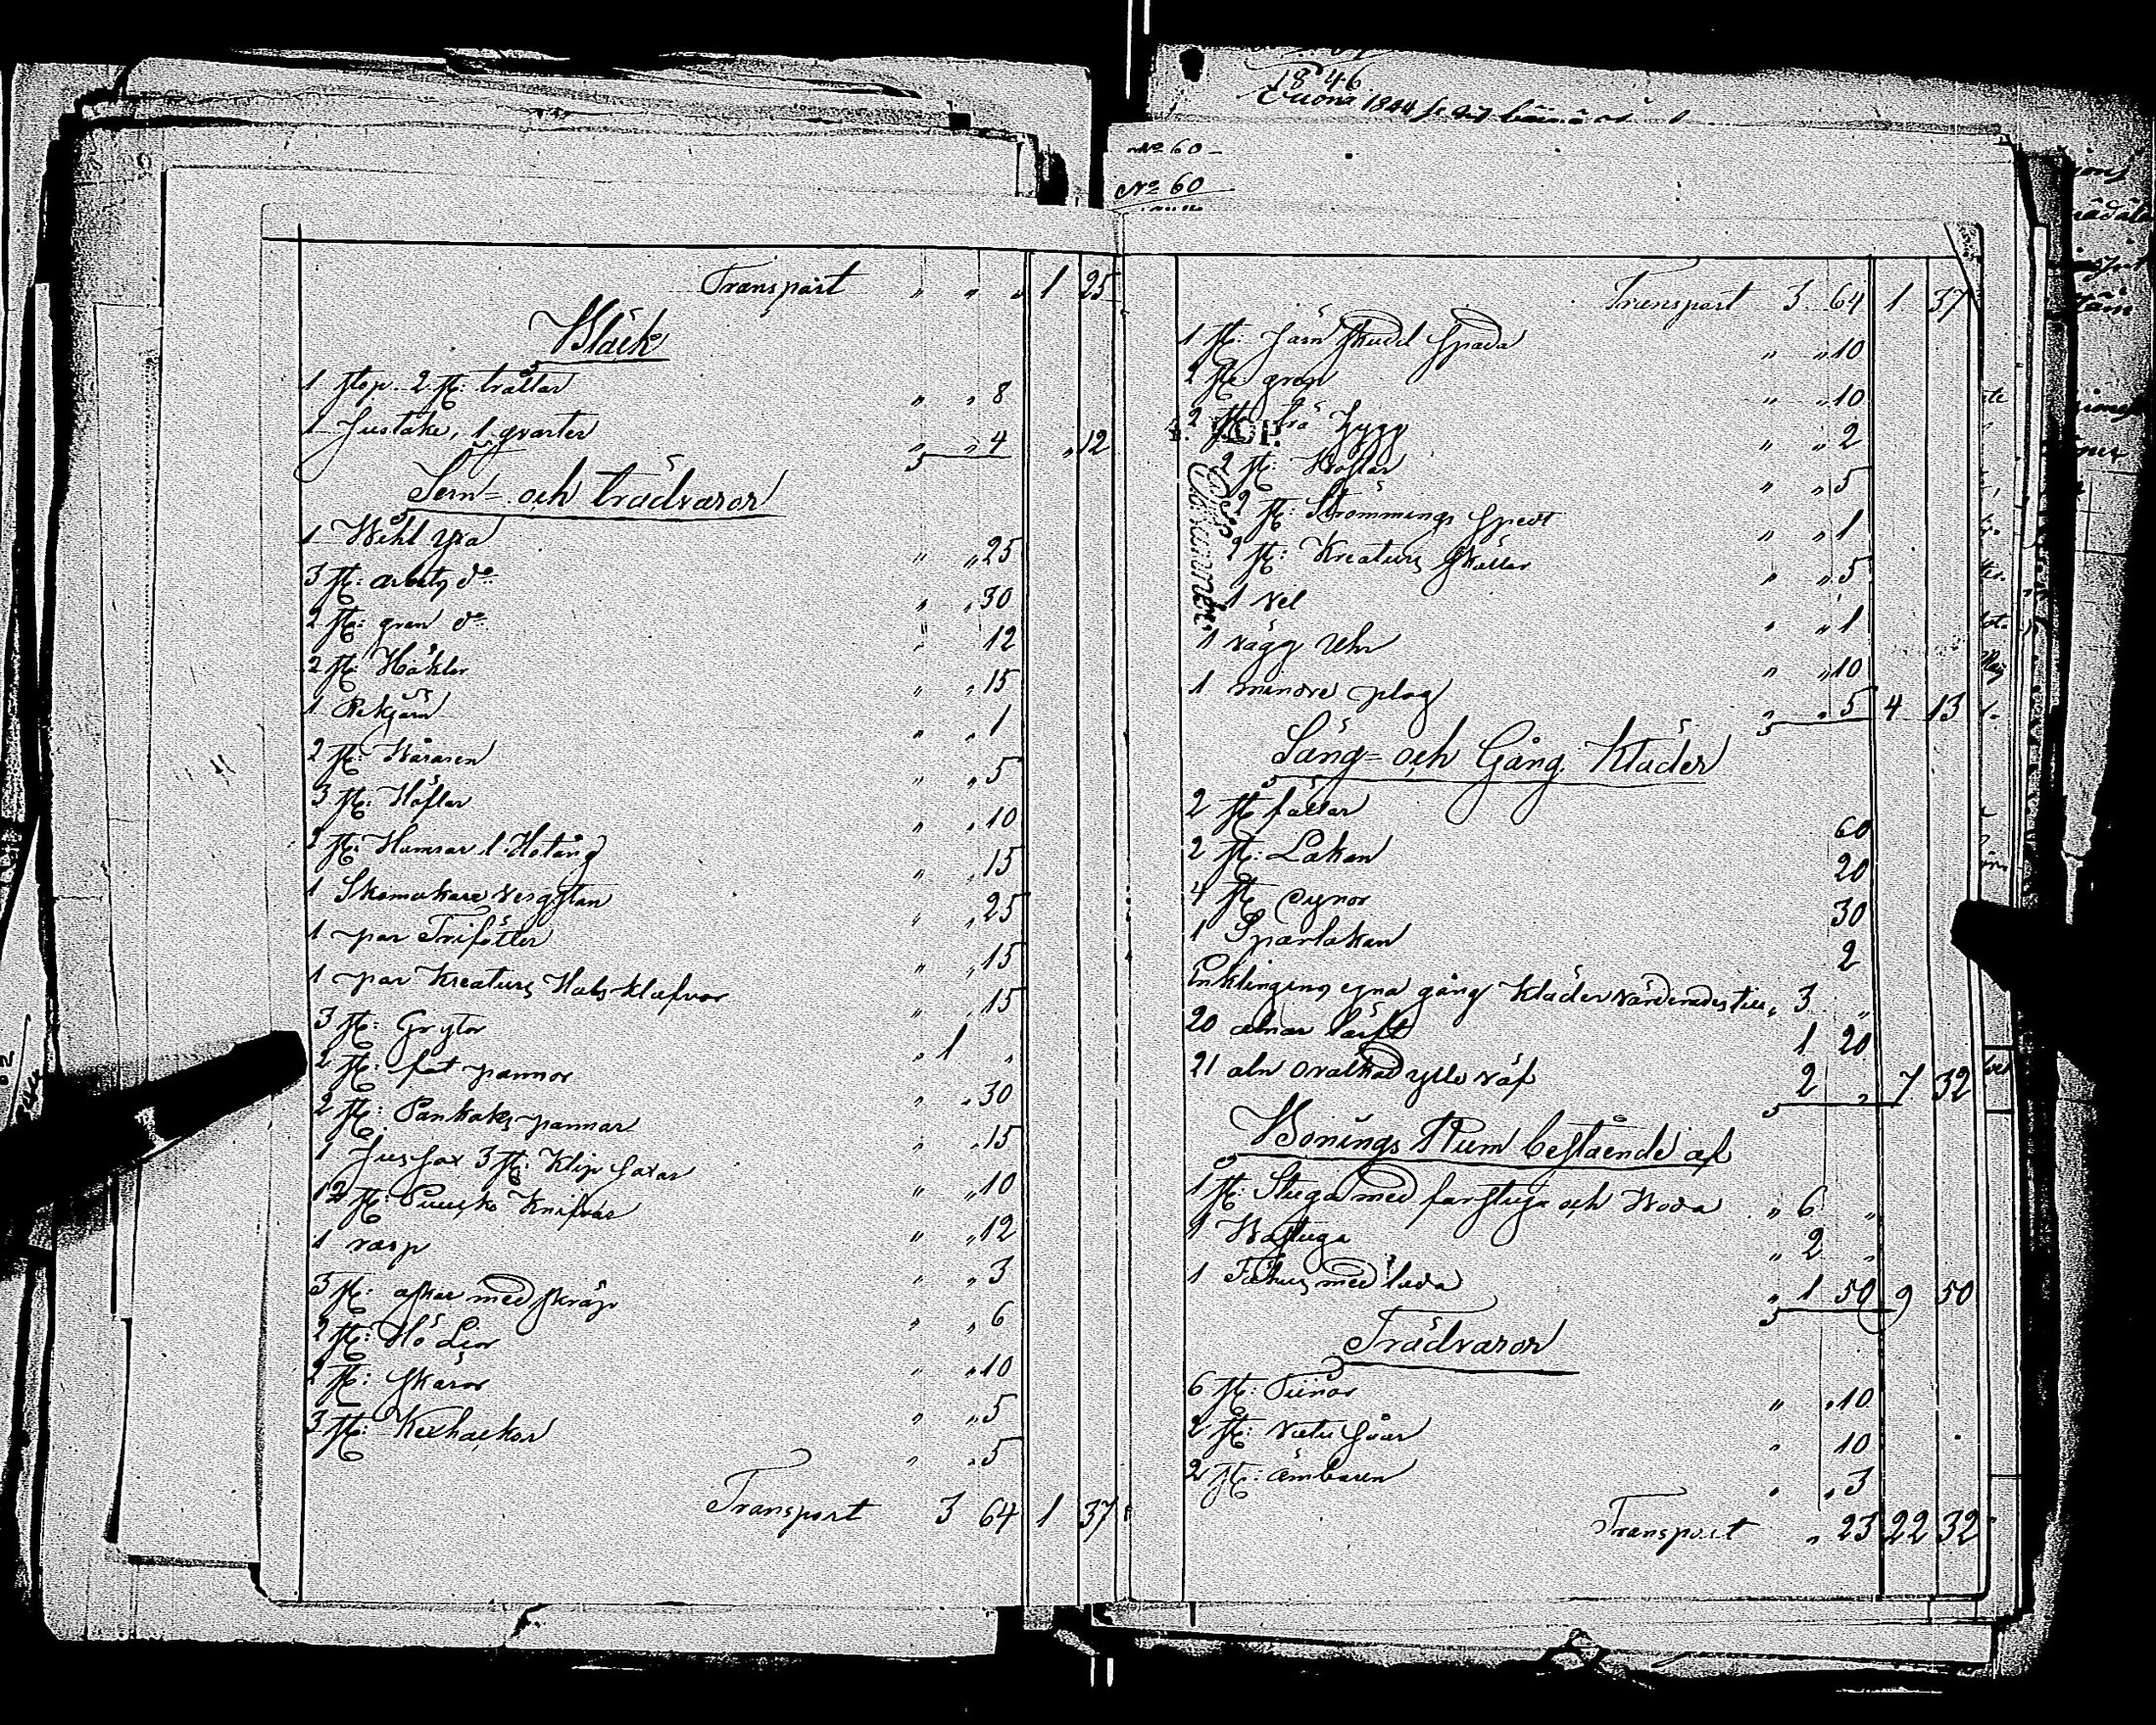 Transport " " " 1 25
Bläck
1 stop 2 st: trattar " " 8
1 ljustake, 1 qvarter " " 4 " 12
Jern- och trädvaror
1 Bihl yxa " " 25
3 st: arbets do " " 30
2 st: gren do " 12
2 st: Häklor " " 15
1 Rakjärn " " 1
2 st: Båraren " " 5
3 st: Höflar " " 10
2 st: Hamrar 1 Hotång " " 15
1 Skomakare vergstan " " 25
1 par Trifötter " " 15
1 par Kreaturs Hals klafvar " " 15
3 st: Grytor " 1 "
2 st: fat pannor " " 30
2 st: Pankaks pannar " " 15
1 ljus sax 3 st: Klip saxar " " 10
12 st: Puuko Knifvar " " 12
1 rasp " " 3
3 st: askar med skräp " " 6
2 st: Hö Liar " " 10
2 st: skäror " " 5
3 st: Kexhackor " " 5
Transport 3 64 1 37
18 46
1844
No 60
No 60
Transport 3 64 1 37
1 st: järn skodd spada " " 10
2 st: grep " " 10
2 st: trä tygg " " 2
2 st: Bössar " " 5
2 st: Strömmings spedt " " 1
2 st: Kreaturs skällor " " 5
1 vel " " 1
1 vägg Uhr " " 10
1 mindre plog " 5 4 13
Säng- och Gång Kläder
2 st fällar 60
2 st: Lakan 20
4 st dynor 30
1 Sparlakan 2
Enklingens egna gång kläder värderades till " 3 "
20 alnar lärft 1 20
21 aln ovalkad ylle väf 2 " 7 32
Bonings Rum bestående af
1 st: Stuga med farstuga och Boda " 6 "
1 Bastuga " 2 "
1 Fähus med lada " 1 50 9 50
Trädvaror
6 st: Tiinor " " 10
2 st: vatu såar " 10
2 st: ämbaren " " 3
Transport " 23 22 32